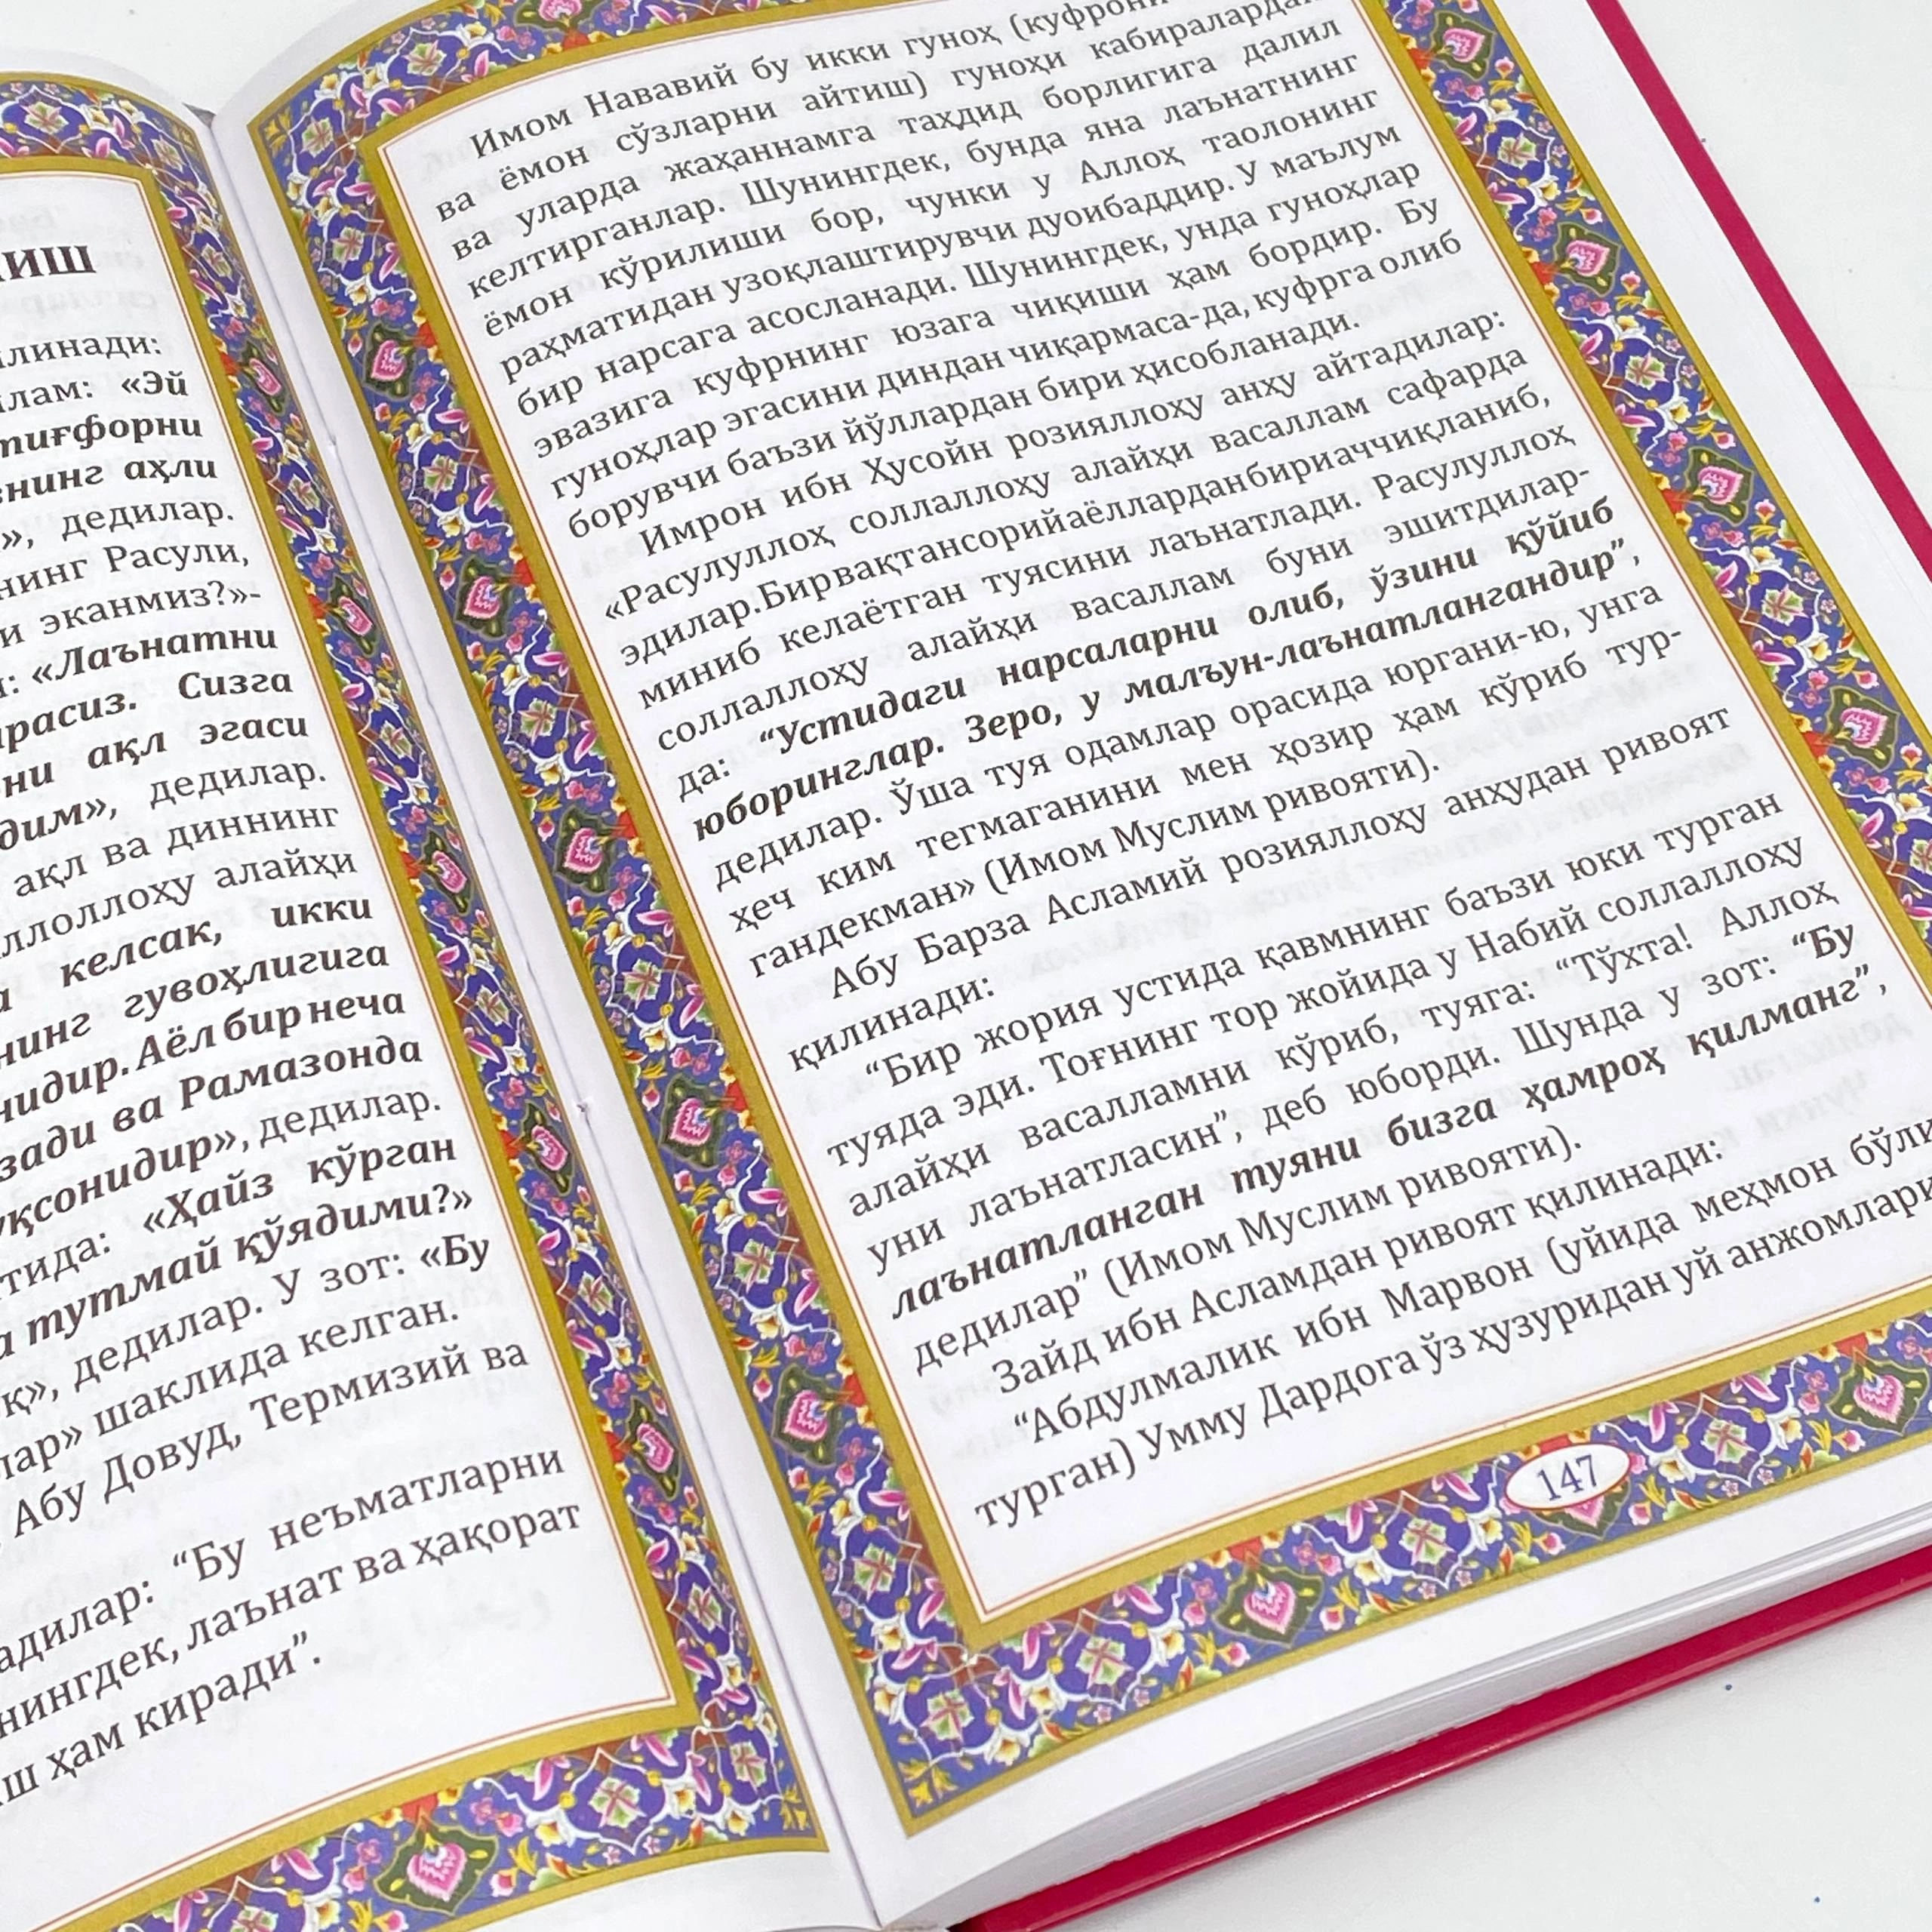 линади:
«Эй
аҳли
дедилар.
Расули,
эканмиз?»-
«Лаънатни
Сизга
ақл эгаси
дедилар.
ақл ва диннинг
алайҳи
келсак, икки
гувоҳлигига
Аёл бир неча
ва Рамазонда
дедилар.
«Ҳайз кўрган
тутмай қўядими?»
дедилар. У зот: «Бу
шаклида келган.
Абу Довуд, Термизий ва
“Бу неъматларни
лаънат ва ҳақорат
ҳам киради”.
Имом Нававий бу икки гуноҳ
ва ёмон сўзларни айтиш) гуноҳи кабиралардан
ва уларда жаҳаннамга таҳдид борлигига далил
келтирганлар. Шунингдек, бунда яна лаънатнинг
ёмон кўрилиши бор, чунки у Аллоҳ таолонинг
раҳматидан узоқлаштирувчи дуоибаддир. У маълум
бир нарсага асосланади. Шунингдек, унда гуноҳлар
эвазига куфрнинг юзага чиқиши ҳам бордир. Бу
гуноҳлар эгасини диндан чиқармаса-да, куфрга олиб
борувчи баъзи йўллардан бири ҳисобланади.
Имрон ибн Ҳусойн розияллоҳу анҳу айтадилар:
«Расулуллоҳ соллаллоҳу алайҳи васаллам сафарда
эдилар. Бир вақт ансорийа аёллардан бири аччиқланиб,
миниб келаётган туясини лаънатлади. Расулуллоҳ
соллаллоҳу алайҳи васаллам буни эшитдилар-
да: “Устидаги нарсаларни олиб, ўзини қўйиб
юборинглар. Зеро, у малъун-лаънатлангандир”,
дедилар. Ўша туя одамлар орасида юргани-ю, унга
ҳеч ким тегмаганини мен ҳозир ҳам кўриб тур-
гандекман» (Имом Муслим ривояти).
Абу Барза Асламий розияллоҳу анҳудан ривоят
қилинади:
“Бир жория устида қавмнинг баъзи юки турган
туяда эди. Тоғнинг тор жойида у Набий соллаллоҳу
алайҳи васалламни кўриб, туяга: “Тўхта! Аллоҳ
уни лаънатласин”, деб юборди. Шунда у зот: “Бу
лаънатланган туяни бизга ҳамроҳ қилманг”,
дедилар” (Имом Муслим ривояти).
Зайд ибн Асламдан ривоят қилинади:
“Абдулмалик ибн Марвон (уйида меҳмон
турган) Умму Дардога ўз ҳузуридан уй анжомлари
147